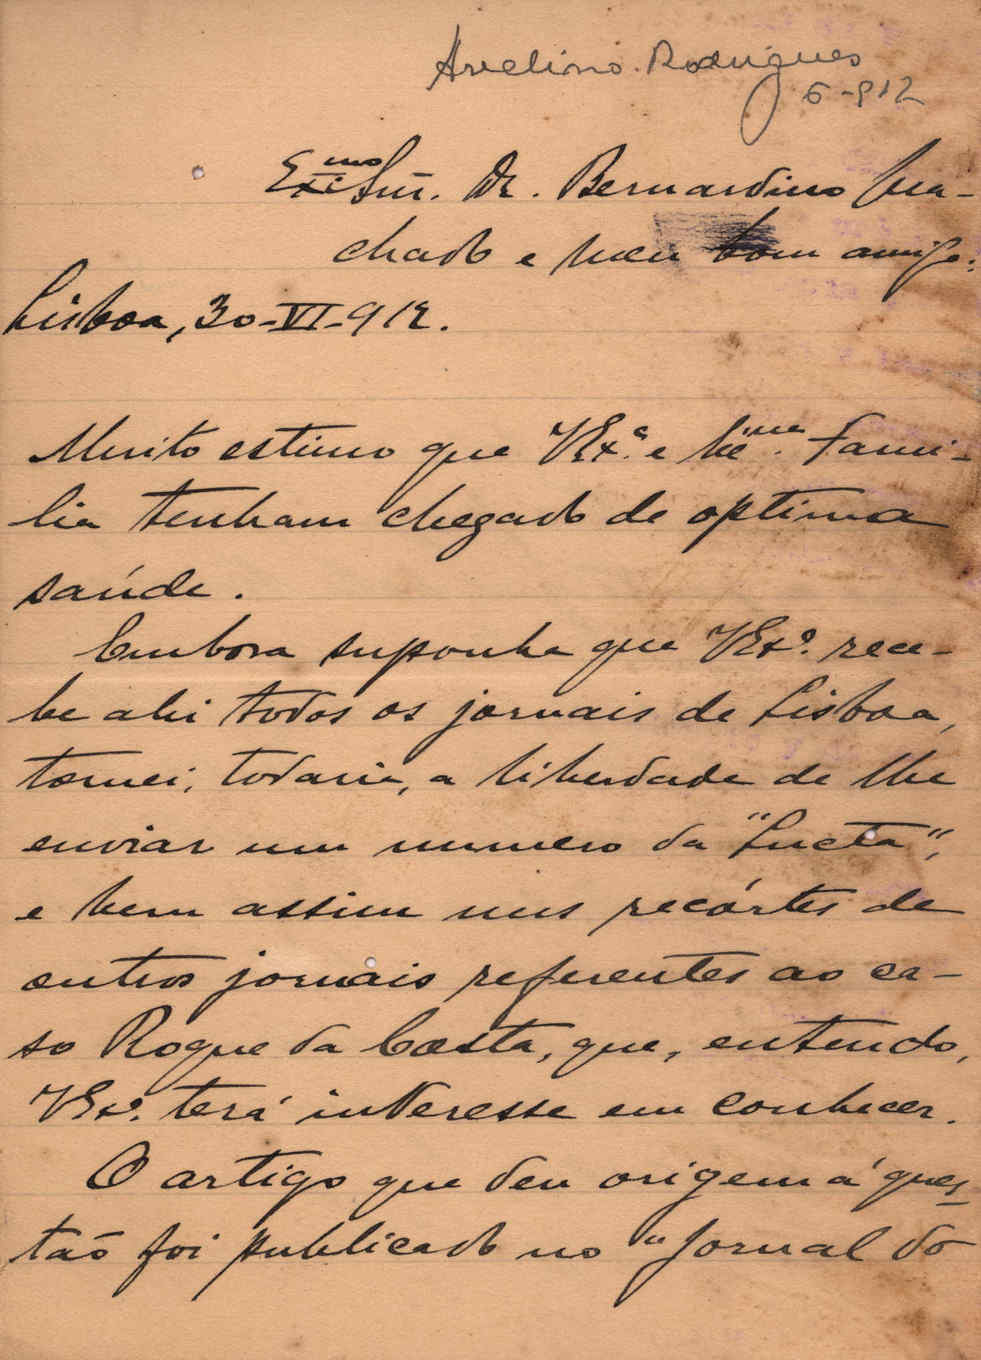 Avelino Rodrigues
6-912
Exmo Snr. Dr. Bernardino Ma-
chado e meu bom amigo:
Lisboa, 30-VI-912.
Muito estimo que VExª e fami-
lia tenham chegado de optima
saúde.
Embora suponha que VExª. rece-
be ahi todos os jornais de Lisboa,
tomei, todavia, a liberdade de lhe
enviar um numero da "Lucta",
e bem assim uns recórtes de
outros jornais referentes ao ca-
so Roque da Costa, que, entendo,
VExª. terá interesse em conhecer.
O artigo que deu origem á ques-
tão foi publicado no "Jornal do